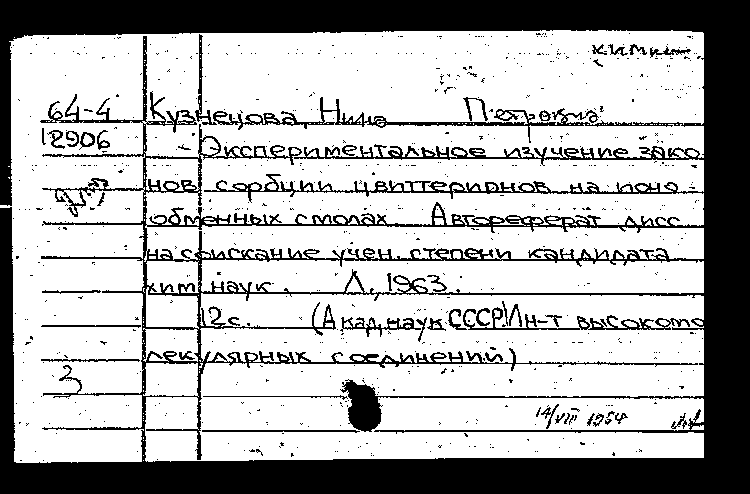 химия
64-4 Кузнецова, Нина Петровна
12906 - Экспериментальное изучение зако
нов сорбции цвиттерионов на ионо-
обменных смолах Автореферат дисс
на соискание учен. степени кандидата
хим наук. Л., 1963.
12с. (Акад. наук СССР. Ин-т высокомо
лекулярных соединений)
3
14/VIII 1964